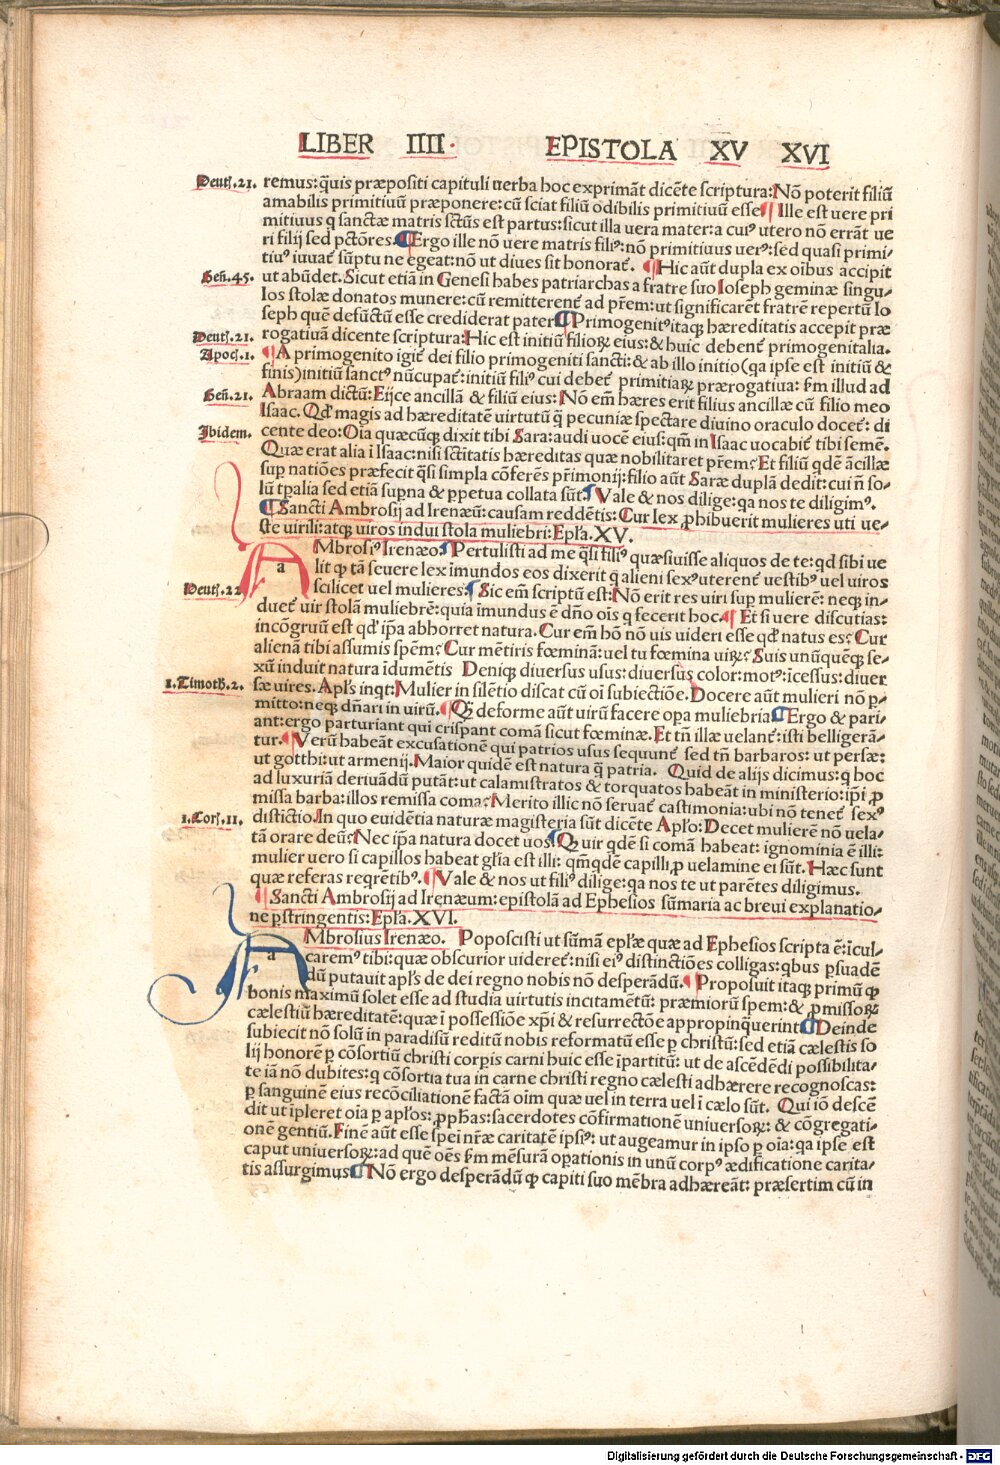 LIBER IIII. EPISTOLA XV XVI
Deut̄.21. remus: q̄uis præpositi capituli uerba hoc exprimāt dicēte scriptura: Nō poterit filiū
amabilis primitiuū præponere: cū sciat filiū odibilis primitiuū esse ¶ Ille est uere pri
mitiuus q sanctæ matris sctūs est partus: sicut illa uera mater: a cuiꝰ utero nō errāt ue
ri filij sed pctōres. ¶ Ergo ille nō uere matris filiꝰ: nō primitiuus uerꝰ: sed quasi primi⸗
tiuꝰ iuuat̄ sūptu ne egeat: nō ut diues sit honorat̄. ¶ Hic aūt dupla ex oībus accipit
Gen̄.45. ut abūdet. Sicut etiā in Genesi habes patriarchas a fratre suo Ioseph geminæ singu⸗
los stolæ donatos munere: cū remitterent̄ ad pr̄em: ut significarēt fratrē repertū Io
seph quē defūctū esse crediderat pater ¶ Primogenitꝰ itaqꝫ hæreditatis accepit præ
Deut̄.21. rogatiuā dicente scriptura: Hic est initiū filioꝝ eius: & huic debent̄ primogenitalia.
Apoc̄.1. ¶ A primogenito igit̄ dei filio primogeniti sancti: & ab illo initio (qa ipse est initiū &
finis) initiū sanctꝰ nūcupat̄: initiū filiꝰ cui debet̄ primitiaꝝ prærogatiua: ẜm illud ad
Gen̄.21. Abraam dictū: Eijce ancillā & filiū eius: Nō em̄ hæres erit filius ancillæ cū filio meo
Isaac. Qd̓ magis ad hæreditatē virtutū q̄ pecuniæ spectare diuino oraculo docet̄: di
Ibidem. cente deo: Oīa quæcūqꝫ dixit tibi Sara: audi uocē eius: qm̄ in Isaac uocabit̄ tibi semē.
Quæ erat alia ī Isaac: nisi sctītatis hæreditas quæ nobilitaret pr̄em? Et filiū qdē ācillæ
suꝑ natiōes præfecit q̄si simpla cōferēs pr̄imonij: filio aūt Saræ duplā dedit: cui n̄ so⸗
lū tꝑalia sed etiā suꝑna & ꝑpetua collata sūt. ¶ Vale & nos dilige: qa nos te diligimꝰ.
¶ Sancti Ambrosij ad Irenæū: causam reddētis: Cur lex ꝓhibuerit mulieres uti ue⸗
ste virili: atqꝫ uiros indui stola muliebri: Epl̄a. XV.
a AMbrosiꝰ Irenæo. ¶ Pertulisti ad me q̄si filiꝰ quæsiuisse aliquos de te: qd sibi ue
lit ꝙ tā seuere lex īmundos eos dixerit q alieni sexꝰ uterent̄ uestibꝰ uel uiros
Deut̄.22 scilicet uel mulieres: ¶ Sic em̄ scriptū est: Nō erit res uiri sup mulierē: neqꝫ in⸗
duet̄ uir stolā muliebrē: quia īmundus ē dn̄o oīs q fecerit hoc. ¶ Et si uere discutias:
incōgruū est qd̓ ip̄a abhorret natura. Cur em̄ hō nō uis uideri esse qd̓ natus es? Cur
alienā tibi assumis spēm? Cur mētiris fœminā: uel tu fœmina uiꝝ? Suis unūquēqꝫ se⸗
xū induit natura īdumētis Deniqꝫ diuersus usus: diuersus color: motꝰ: īcessus: diuer
1.Timoth̄.2. sæ uires. Apl̄s inqt: Mulier in silētio discat cū oī subiectiōe. Docere aūt mulieri nō ꝑ⸗
mitto: neqꝫ dn̄ari in uirū. ¶ Qꝫ deforme aūt uirū facere oꝑa muliebria ¶ Ergo & pari⸗
ant: ergo parturiant qui crispant comā sicut fœminæ. Et tn̄ illæ uelant̄: isti belligerā⸗
tur. ¶ Verū habeāt excusationē qui patrios usus sequunt̄ sed tn̄ barbaros: ut persæ:
ut gotthi: ut armenij. Maior quidē est natura q̄ patria. Quid de alijs dicimus: q hoc
ad luxuriā deriuādū putāt: ut calamistratos & torquatos habeāt in ministerio: ip̄i ꝓ
missa barba: illos remissa coma? Merito illic nō seruat̄ castimonia: ubi nō tenet̄ sexꝰ
1.Cor̄.11. distīctio. In quo euidētia naturæ magisteria sūt dicēte Apl̄o: Decet mulierē nō uela⸗
tā orare deū? Nec ip̄a natura docet uos ¶ Qꝫ uir qdē si comā habeat: ignominia ē illi:
mulier uero si capillos habeat gl̄ia est illi: qm̄ qdē capilli ꝓ uelamine ei sūt. Hæc sunt
quæ referas reqrētibꝰ. ¶ Vale & nos ut filiꝰ dilige: qa nos te ut parētes diligimus.
¶ Sancti Ambrosij ad Irenæum: epistolā ad Ephesios sūmaria ac breui explanatio⸗
ne ꝑstringentis: Epl̄a. XVI.
a AMbrosius Irenæo. Poposcisti ut sūmā epl̄æ quæ ad Ephesios scripta ē: īcul⸗
caremꝰ tibi: quæ obscurior uideret̄: nisi eiꝰ distinctiōes colligas: qbus ꝑsuadē
dū putauit apl̄s de dei regno nobis nō desperādū. ¶ Proposuit itaqꝫ primū ꝙ
bonis maximū solet esse ad studia virtutis incitamētū: præmiorū spem: & ꝓmissoꝝ
cælestiū hæreditatē: quæ ī possessiōe xp̄i & resurrectōe appropinq̄uerint ¶ Deinde
subiecit nō solū in paradisū reditū nobis reformatū esse ꝑ christū: sed etiā cælestis so
lij honorē ꝑ cōsortiū christi corpis carni huic esse īpartitū: ut de ascēdēdi possibilita⸗
te iā nō dubites: q cōsortia tua in carne christi regno cælesti adhærere recognoscas:
ꝑ sanguinē eius recōciliationē factā oīm quæ uel in terra uel ī cælo sūt. Qui iō descē
dit ut īpleret oīa ꝑ apl̄os: ꝓph̄as: sacerdotes cōfirmationē uniuersoꝝ: & cōgregati⸗
onē gentiū. Finē aūt esse spei nr̄æ caritatē ipsiꝰ: ut augeamur in ipso ꝑ oīa: qa ipse est
caput uniuersoꝝ: ad quē oēs ẜm mēsurā oꝑationis in unū corpꝰ ædificatione carita⸗
tis assurgimus ¶ Nō ergo desperādū ꝙ capiti suo mēbra adhæreāt: præsertim cū in
Digitalisierung gefördert durch die Deutsche Forschungsgemeinschaft - DFG